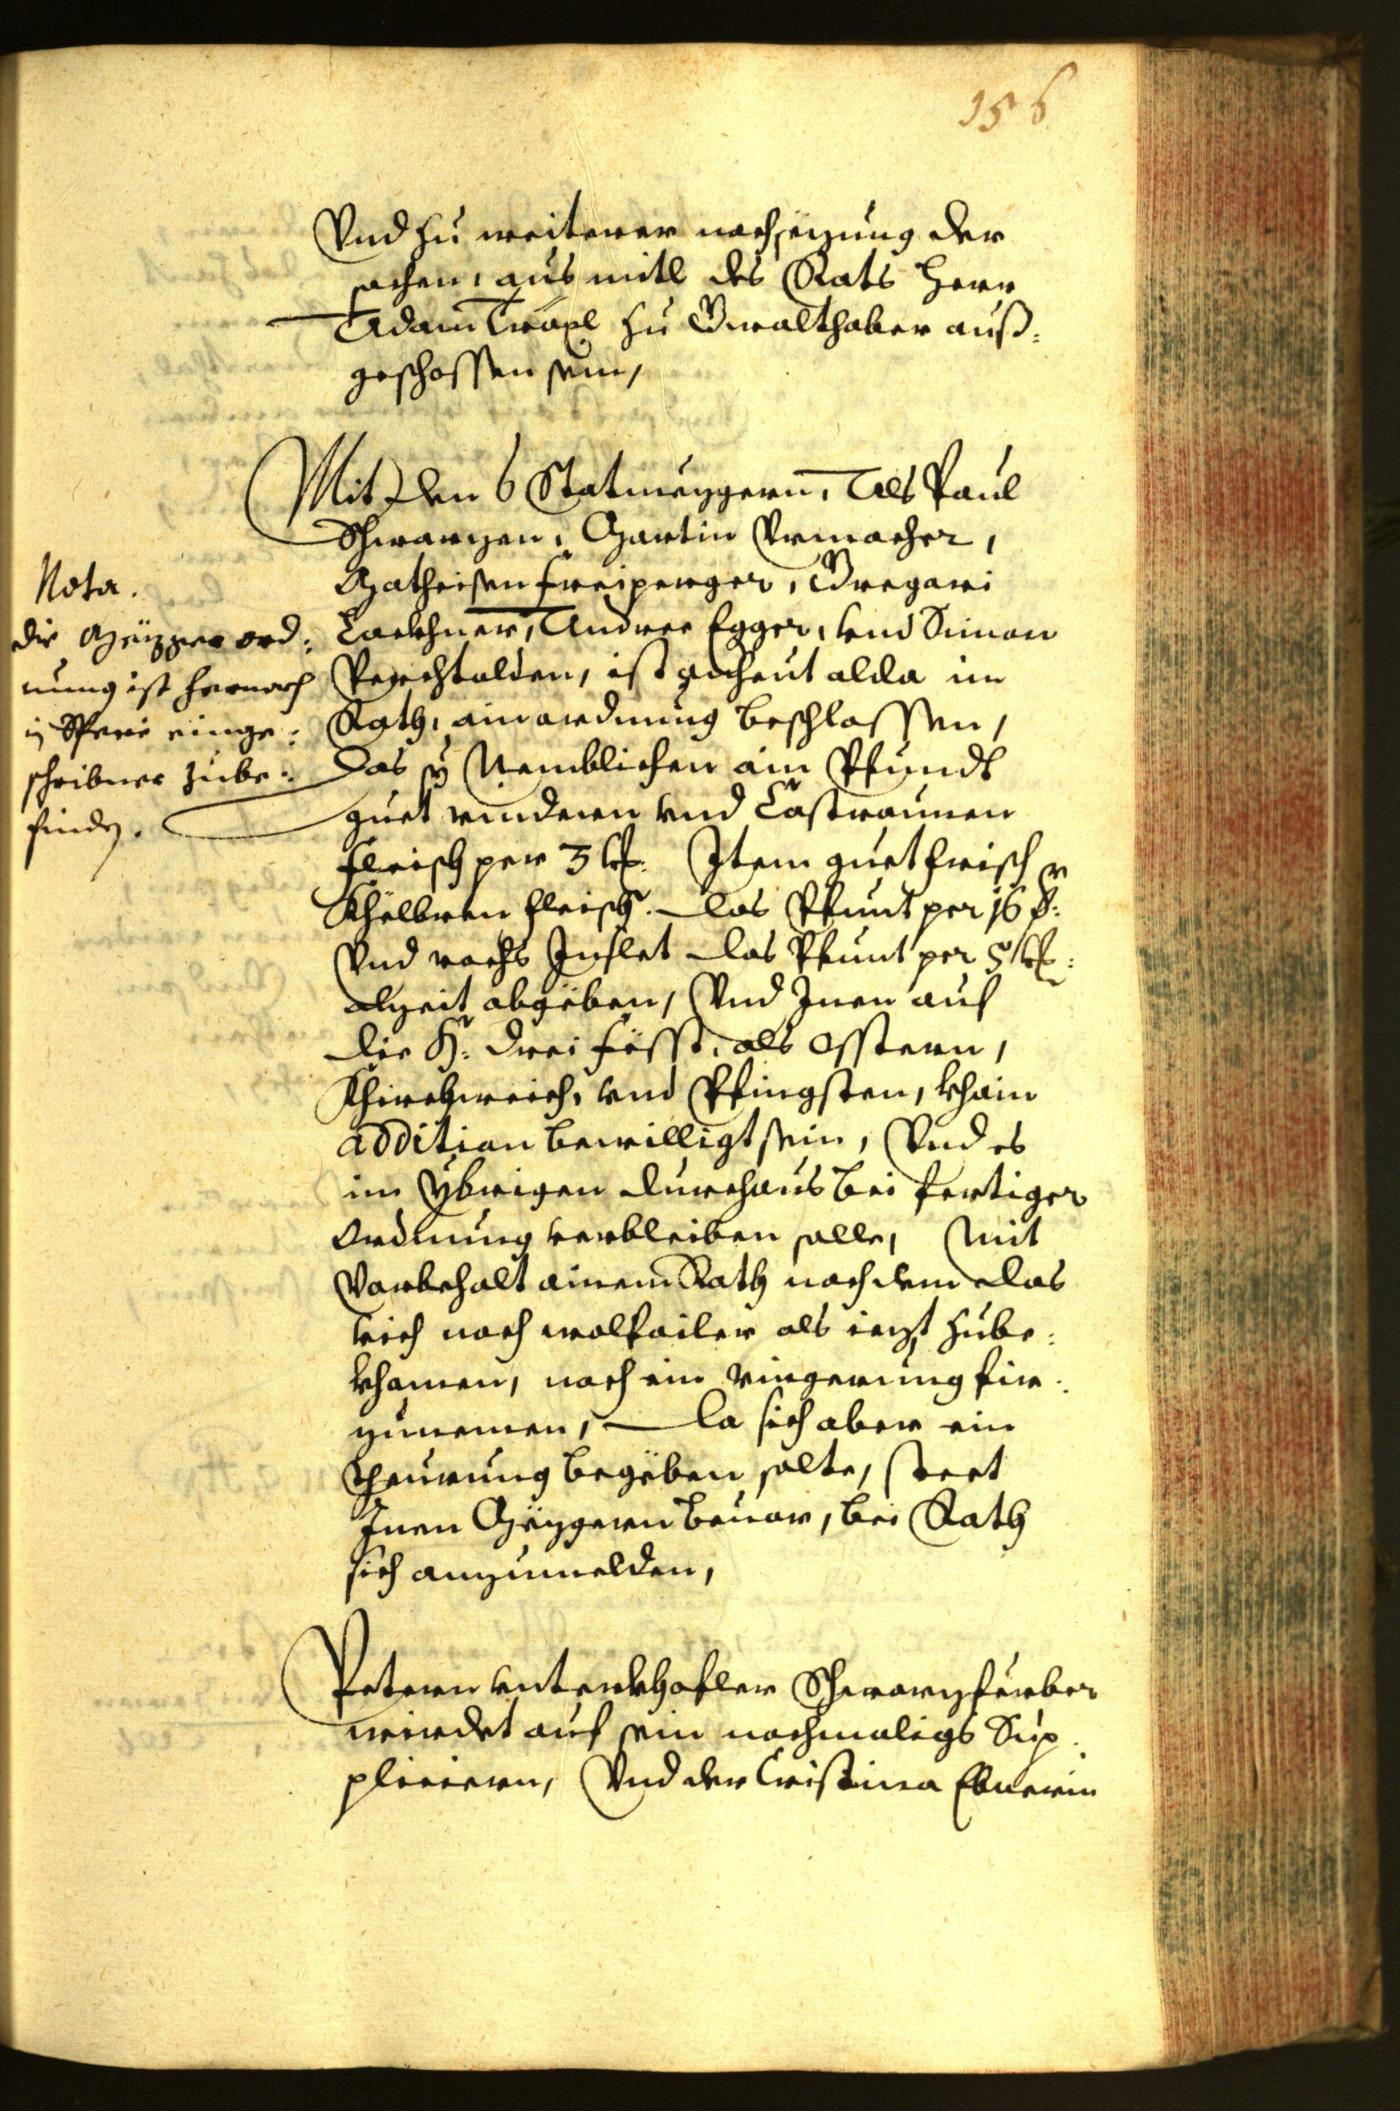 156
Vnd zu weiterer nachsezung der
sachen, aus mitl des Rats Herr
Adam Tröxl zu Gwalthaber auß-
geschossen sein,
Mit den 6 Statmezgern, Als Paul
Schwarzen, Martin Vrmacher,
Matheisen Freiperger, Gregori
Lackhner, Andree Egger, vnd Simon
Perchtolden, ist anheut alda im
Rath, ain ordnung beschlossen,
Das sy Nemblichen ain Pfundt
guet rinderen vnd Castraunen
fleisch per 3 kr. Item guet frisch
Khelbren fleisch. das Pfunt per 16 f:
Vnd rochs Inslet das Pfunt per 5 kr:
alzeit abgeben, Vnd Inen auf
die H: drei fësst, als Osstern,
Khirchweich, vnd Pfingsten, khain
addition bewilligt sein, Vnd es
im ÿbrigen durchaus bei fertiger
ordnung verbleiben solle, mit
Vorbehalt ainem Rath nachdem das
vich noch wolfailer als iezt zube-
khomen, noch ein ringerung fir-
zunemen, da sich aber ein
theurung begëben solte, steet
Inen Mezgern beuor, bei Rath
sich anzumelden,
Nota.
die Mezger ord-
nung ist hernach
einge-
schribner zube-
finden.
Petern Unterkhofler Schwarzferber
wirdet auf sein nochmaligs Sup-
plicieren, Vnd der Cristina Ebnerin